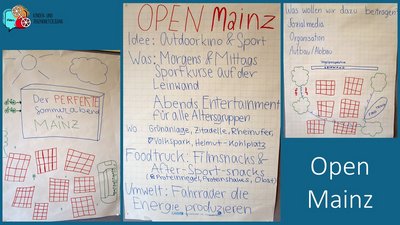 KINDER- UND
JUGENDBETEILIGUNG
Der PERFEKTE
Sommerabend
in
MAINZ
OPEN Mainz
Idee: Outdoorkino & Sport
Was: Morgens & Mittags
Sportkurse auf der
Leinwand
Abends Entertainment
Für alle Altersgruppen
Wo: Grünanlage, Zitadelle, Rheinufer,
Volkspark, Helmut-Kohlplatz
Foodtruck: Filmsnacks &
After-Sport-snacks
(Proteinriegel, Proteinshakes, Obst)
Umwelt: Fahrräder die
Energie produzieren
Was wollen wir dazu beitragen?
Sozialmedia
Organisation
Aufbau/Abbau
Open
Mainz